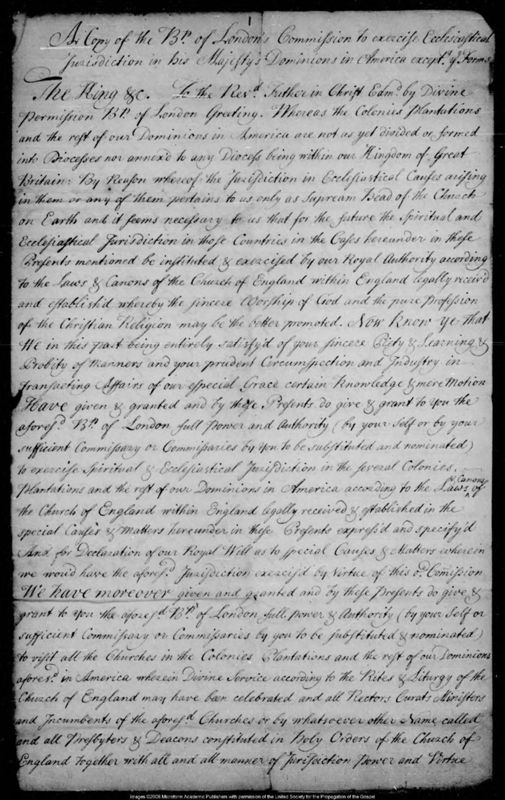 1
A Copy of the Bp. of London's Commission to exercise Ecclesiastical
Jurisdiction in his Majesty's Dominions in America except. ye Forms
The King &c. To the Revd. Father in Christ Edmd. by Divine
Permission Bp. of London Greeting. Whereas the Colonies Plantations
and the rest of our Dominions in America are not as yet divided or formed
into Diocesses nor annexd to any Diocess being within our Kingdom of Great
Britain: By Reason whereof the Jurisdiction in Ecclesiastical Causes arising
in them or any of them pertains to us only as Supream Head of the Church
on Earth and it seems necessary to us that for the future the Spiritual and
Ecclesiastical Jurisdiction in those Countries in the Cases hereunder in these
Presents mentioned be instituted & exercised by our Royal Authority according
to the Laws & Canons of the Church of England within England legally receiv'd
and establish'd whereby the sincere Worship of God and the pure Profession
of the Christian Religion may be the better promoted. Now know ye That
We in this part being entirely satisfy'd of your sincere Piety & Learning &
Probity of Manners and your prudent Circumspection and Industry in
transacting Affairs of our especial Grace certain Knowledge & mere Motion
Have given & granted and by these Presents do give & grant to you the
aforesd. Bp. of London full Power and Authority (by your Self or by your
sufficient Commissary or Commissaries by You to be substituted and nominated)
to exercise Spiritual & Ecclesiastical Jurisdiction in the several Colonies.
Plantations and the rest of our Dominions in America according to the Laws & Canons of
the Church of England within England legally received & established in the
special Causes & Matters hereunder in these Presents express'd and specify'd
And for Declaration of our Royal Will as to special Causes & Matters wherein
we woud have the aforesd. Jurisdiction exercis'd by Virtue of this our Comission
We have moreover given and granted and by these Presents do give &
grant to you the aforesd. Bp. of London full power & Authority (by your Self or
sufficient Commissary or Commissaries by you to be substituted & nominated)
to visit all the Churches in the Colonies Plantations and the rest of our Dominions
aforesd. in America wherein Divine Service according to the Rites & Liturgy of the
Church of England may have been celebrated and all Rectors Curats Ministers
and Incumbents of the aforesd. Churches or by whatsoever other Name called
and all Presbyters & Deacons constituted in Holy Orders of the Church of
England together with all and all manner of Jurisdiction Power and Virtue
Images ©2006 Microform Academic Publishers with permission of the United Society for the Propagation of the Gospel